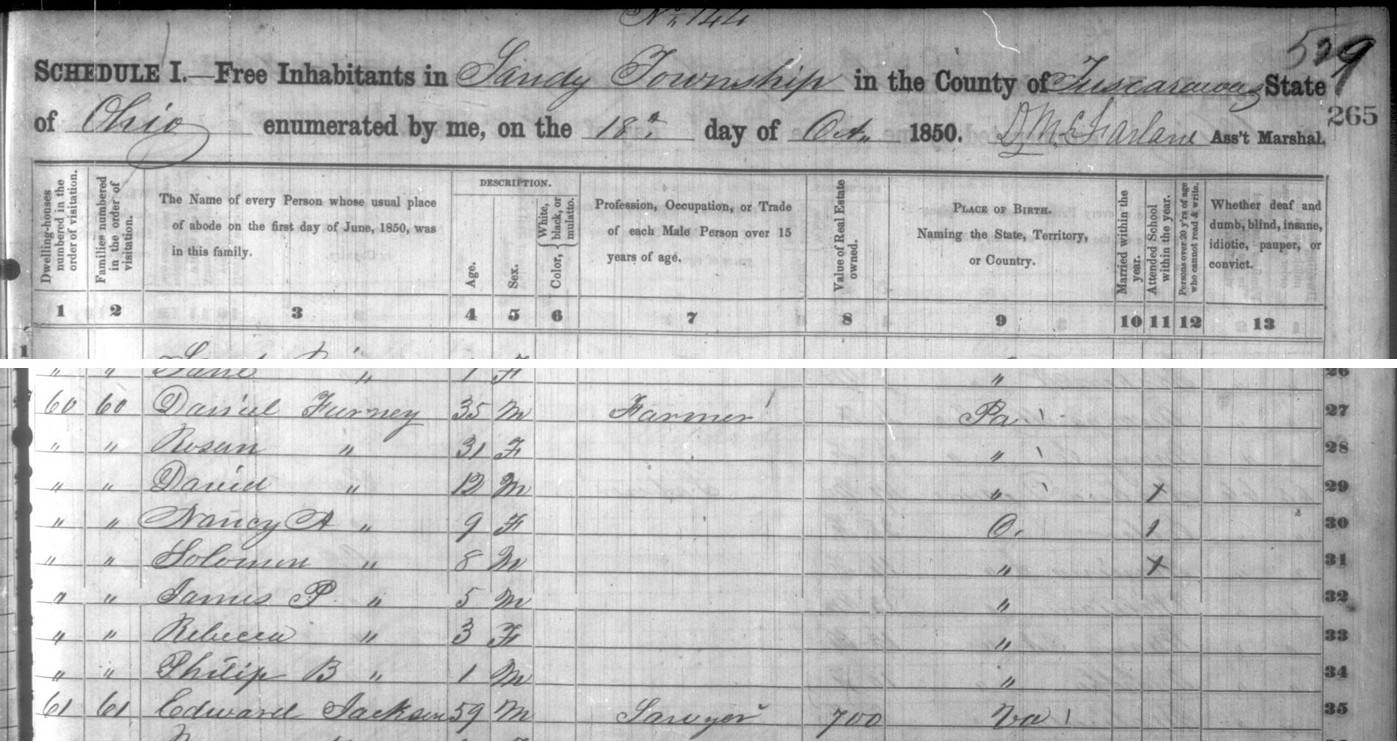 No. 144
529
SCHEDULE I.—Free Inhabitants in Sandy Township in the County of Tuscarawas State
of Ohio enumerated by me, on the 18th day of Oct. 1850. D McFarlane Ass't Marshal.
265
Dwelling-houses numbered in the order of visitation.
Families numbered in the order of visitation.
The Name of every Person whose usual place of abode on the first day of June, 1850, was in this family.
DESCRIPTION.
Age.
Sex.
Color, { White, black, or mulatto.
Profession, Occupation, or Trade of each Male Person over 15 years of age.
Value of Real Estate owned.
PLACE OF BIRTH. Naming the State, Territory, or Country.
Married within the year.
Attended School within the year.
Persons over 20 y'rs of age who cannot read & write.
Whether deaf and dumb, blind, insane, idiotic, pauper, or convict.
1 2 3 4 5 6 7 8 9 10 11 12 13
1
" " Jane " 1 F " 26
60 60 Daniel Furney 35 M Farmer Pa 27
" " Rosan " 31 F " 28
" " David " 12 M " x 29
" " Nancy A " 9 F O. 1 30
" " Solomon " 8 M " x 31
" " James P. " 5 M " 32
" " Rebecca " 3 F " 33
" " Philip B " 1 M " 34
61 61 Edward Jackson 59 M Sawyer 700 Va 35